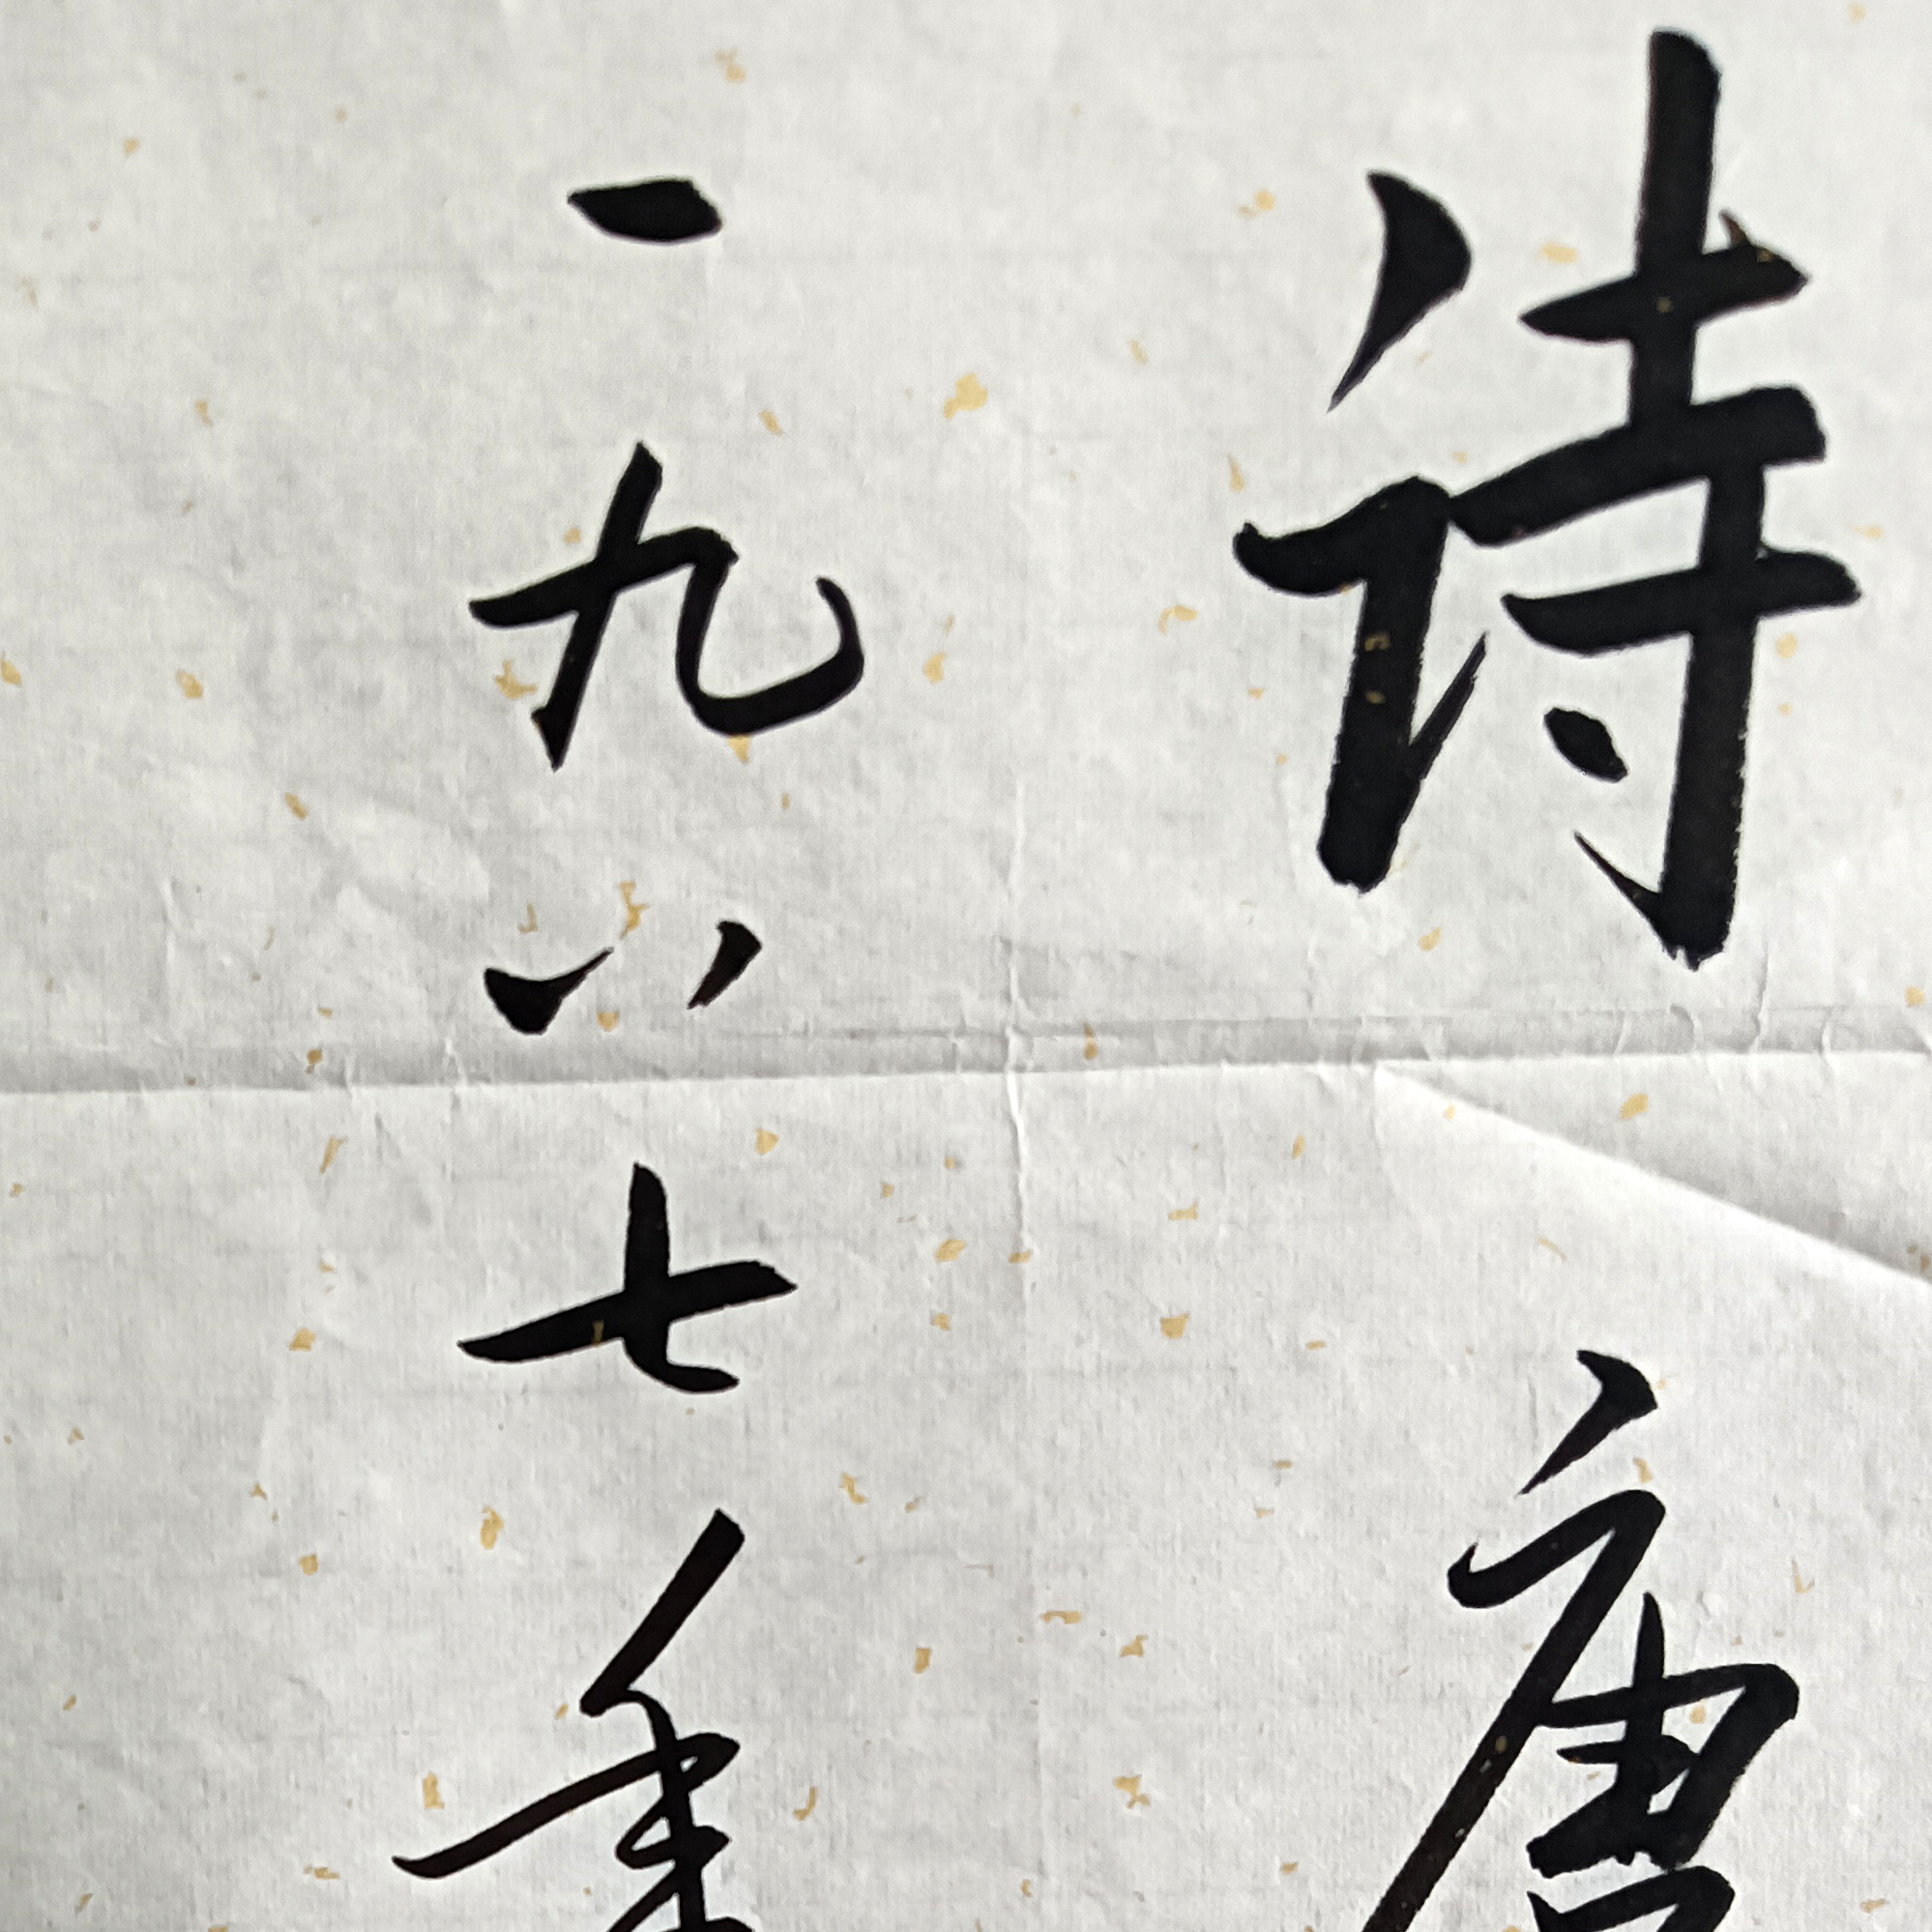 诗唐
一九八七年